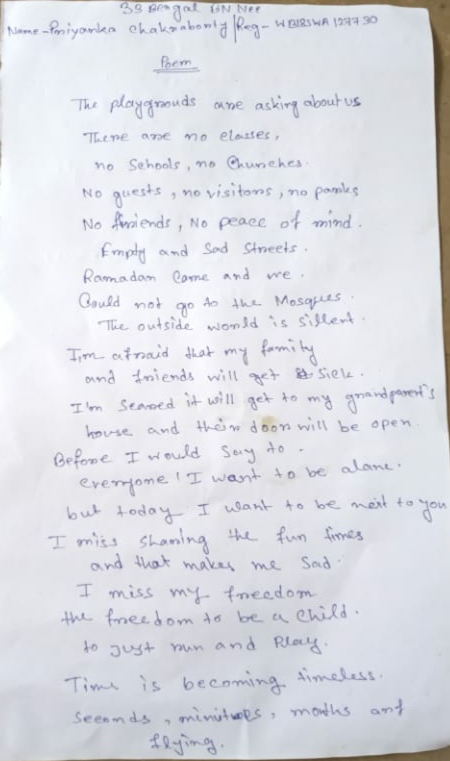 33 Bengal BN NCC
Name - Priyanka Chakraborty / Reg - WB18SWA127730
Poem
The playgrouds are asking about us
There are no classes,
no Schools, no Churches.
No guests, no visitors, no parks
No friends, No peace of mind.
Empty and Sad Streets.
Ramadan Came and we.
Could not go to the Mosques.
The outside world is sillent.
I,m afraid that my family
and friends will get sick.
I'm Scared it will get to my grandparent's
house and their door will be open.
Before I would Say to -
everyone! I want to be alane.
but today I want to be next to you
I miss sharing the fun times
and that makes me Sad.
I miss my freedom
the freedom to be a child.
to just run and Play.
Time is becoming timeless.
Seconds, minitues, moths and
flying.